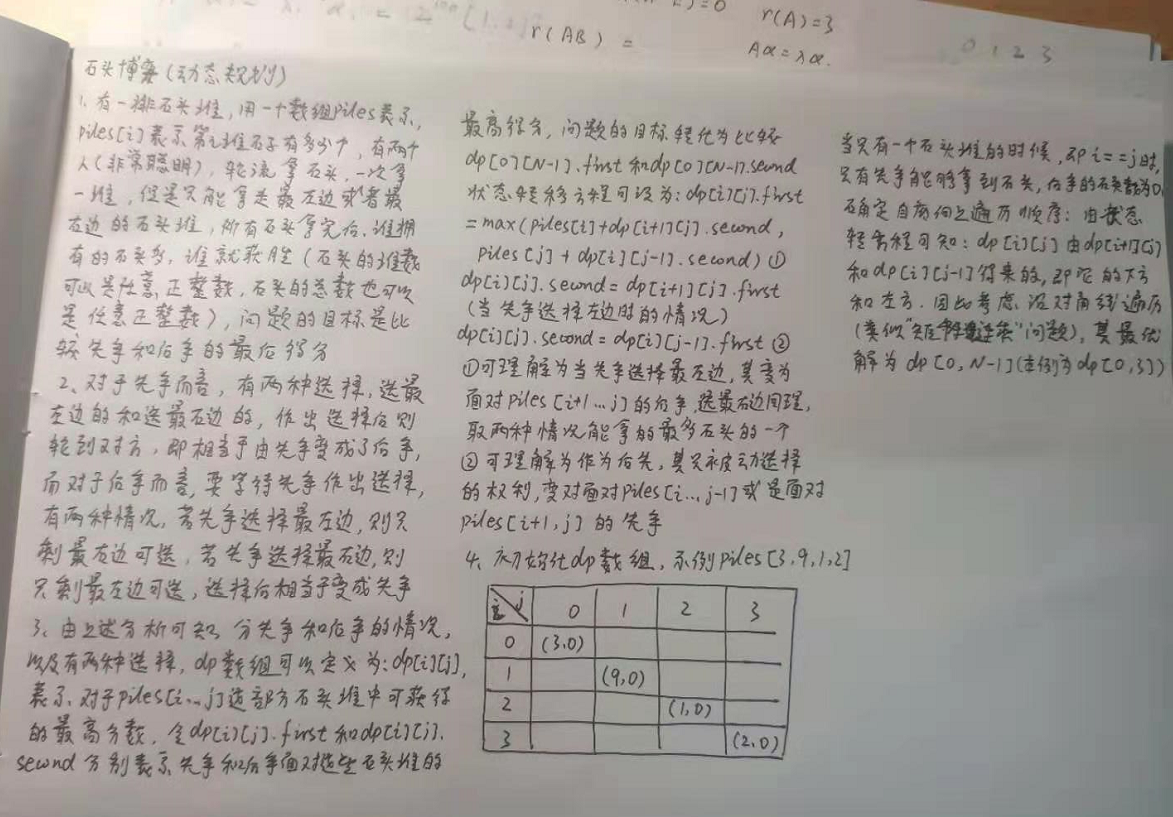 r(A)=3
r(AB) =
Aα=λα.
0 1 2 3
石头博弈(动态规划)
1、有一排石头堆,用一个数组piles表示,
piles[i]表示第i堆石子有多少个,有两个
人(非常聪明),轮流拿石头,一次拿
一堆,但是只能拿走最左边或者最
右边的石头堆,所有石头拿完后,谁拥
有的石头多,谁就获胜(石头的堆数
可以是任意正整数,石头的总数也可以
是任意正整数),问题的目标是比
较先手和后手的最后得分
2、对于先手而言,有两种选择,选最
左边的和选最右边的,作出选择后则
轮到对方,即相当于由先手变成了后手,
而对于后手而言,要等待先手作出选择,
有两种情况,若先手选择最左边,则只
剩最右边可选,若先手选择最右边,则
只剩最左边可选,选择后相当于变成先手
3、由上述分析可知,分先手和后手的情况,
以及有两种选择,dp数组可以定义为:dp[i][j],
表示,对于piles[i...j]这部分石头堆中可获得
的最高分数,令dp[i][j].first和dp[i][j].
second分别表示先手和后手面对这些石头堆的
最高得分,问题的目标转化为比较
dp[0][N-1].first和dp[0][N-1].second
状态转移方程可设为:dp[i][j].first
=max(piles[i]+dp[i+1][j].second,
piles[j]+dp[i][j-1].second) ①
dp[i][j].second=dp[i+1][j].first
(当先手选择左边时的情况)
dp[i][j].second=dp[i][j-1].first ②
①可理解为当先手选择最左边,其变为
面对piles[i+1...j]的后手,选最右边同理,
取两种情况能拿的最多石头的一个
②可理解为作为后先,其只被动选择
的权利,变对面对piles[i...,j-1]或是面对
piles[i+1,j]的先手
4、初始化dp数组,示例piles[3,9,1,2]
i j 0 1 2 3
0 (3,0)
1 (9,0)
2 (1,0)
3 (2,0)
当只有一个石头堆的时候,即i==j时,
只有先手能够拿到石头,后手的石头数为0,
确定自底向上遍历顺序:由状态
转移方程可知:dp[i][j]由dp[i+1][j]
和dp[i][j-1]得来的,即它的下方
和左方.因此考虑沿对角线遍历
(类似"矩阵连乘"问题),其最优
解为dp[0,N-1](本例为dp[0,3])